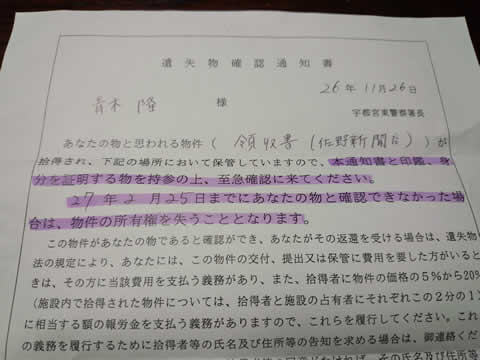 遺失物確認通知書
26年11月26日
青木 隆 様
宇都宮東警察署長
あなたの物と思われる物件( 領収書(佐野新聞店) )が
拾得され、下記の場所において保管していますので、本通知書と印鑑、身
分を証明する物を持参の上、至急確認に来てください。
27年2月25日までにあなたの物と確認できなかった場
合は、物件の所有権を失うこととなります。
この物件があなたの物であると確認ができ、あなたがその返還を受ける場合は、遺失物
法の規定により、あなたには、この物件の交付、提出又は保管に費用を要した方がいると
きは、その方に当該費用を支払う義務があり、また、拾得者に物件の価格の5%から20%
(施設内で拾得された物件については、拾得者と施設の占有者にそれぞれこの2分の1)
に相当する額の報労金を支払う義務がありますので、これらを履行してください。これ
の義務を履行するために拾得者等の氏名及び住所等の告知を求める場合は、御連絡くだ